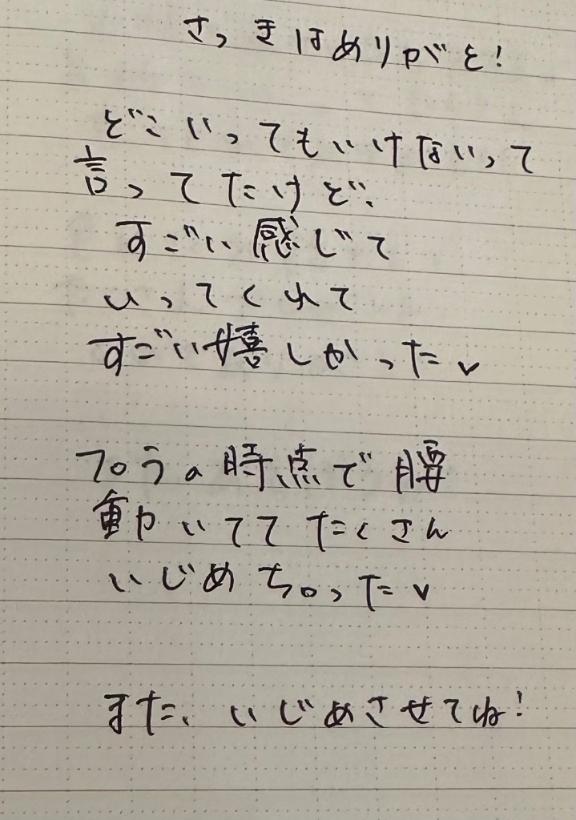 さっきはありがと!
どこいってもいけないって
言ってたけど、
すごい感じて
いってくれて
すごい嬉しかった♥
フロラの時点で腰
動いててたくさん
いじめちゃった♥
また、いじめさせてね!